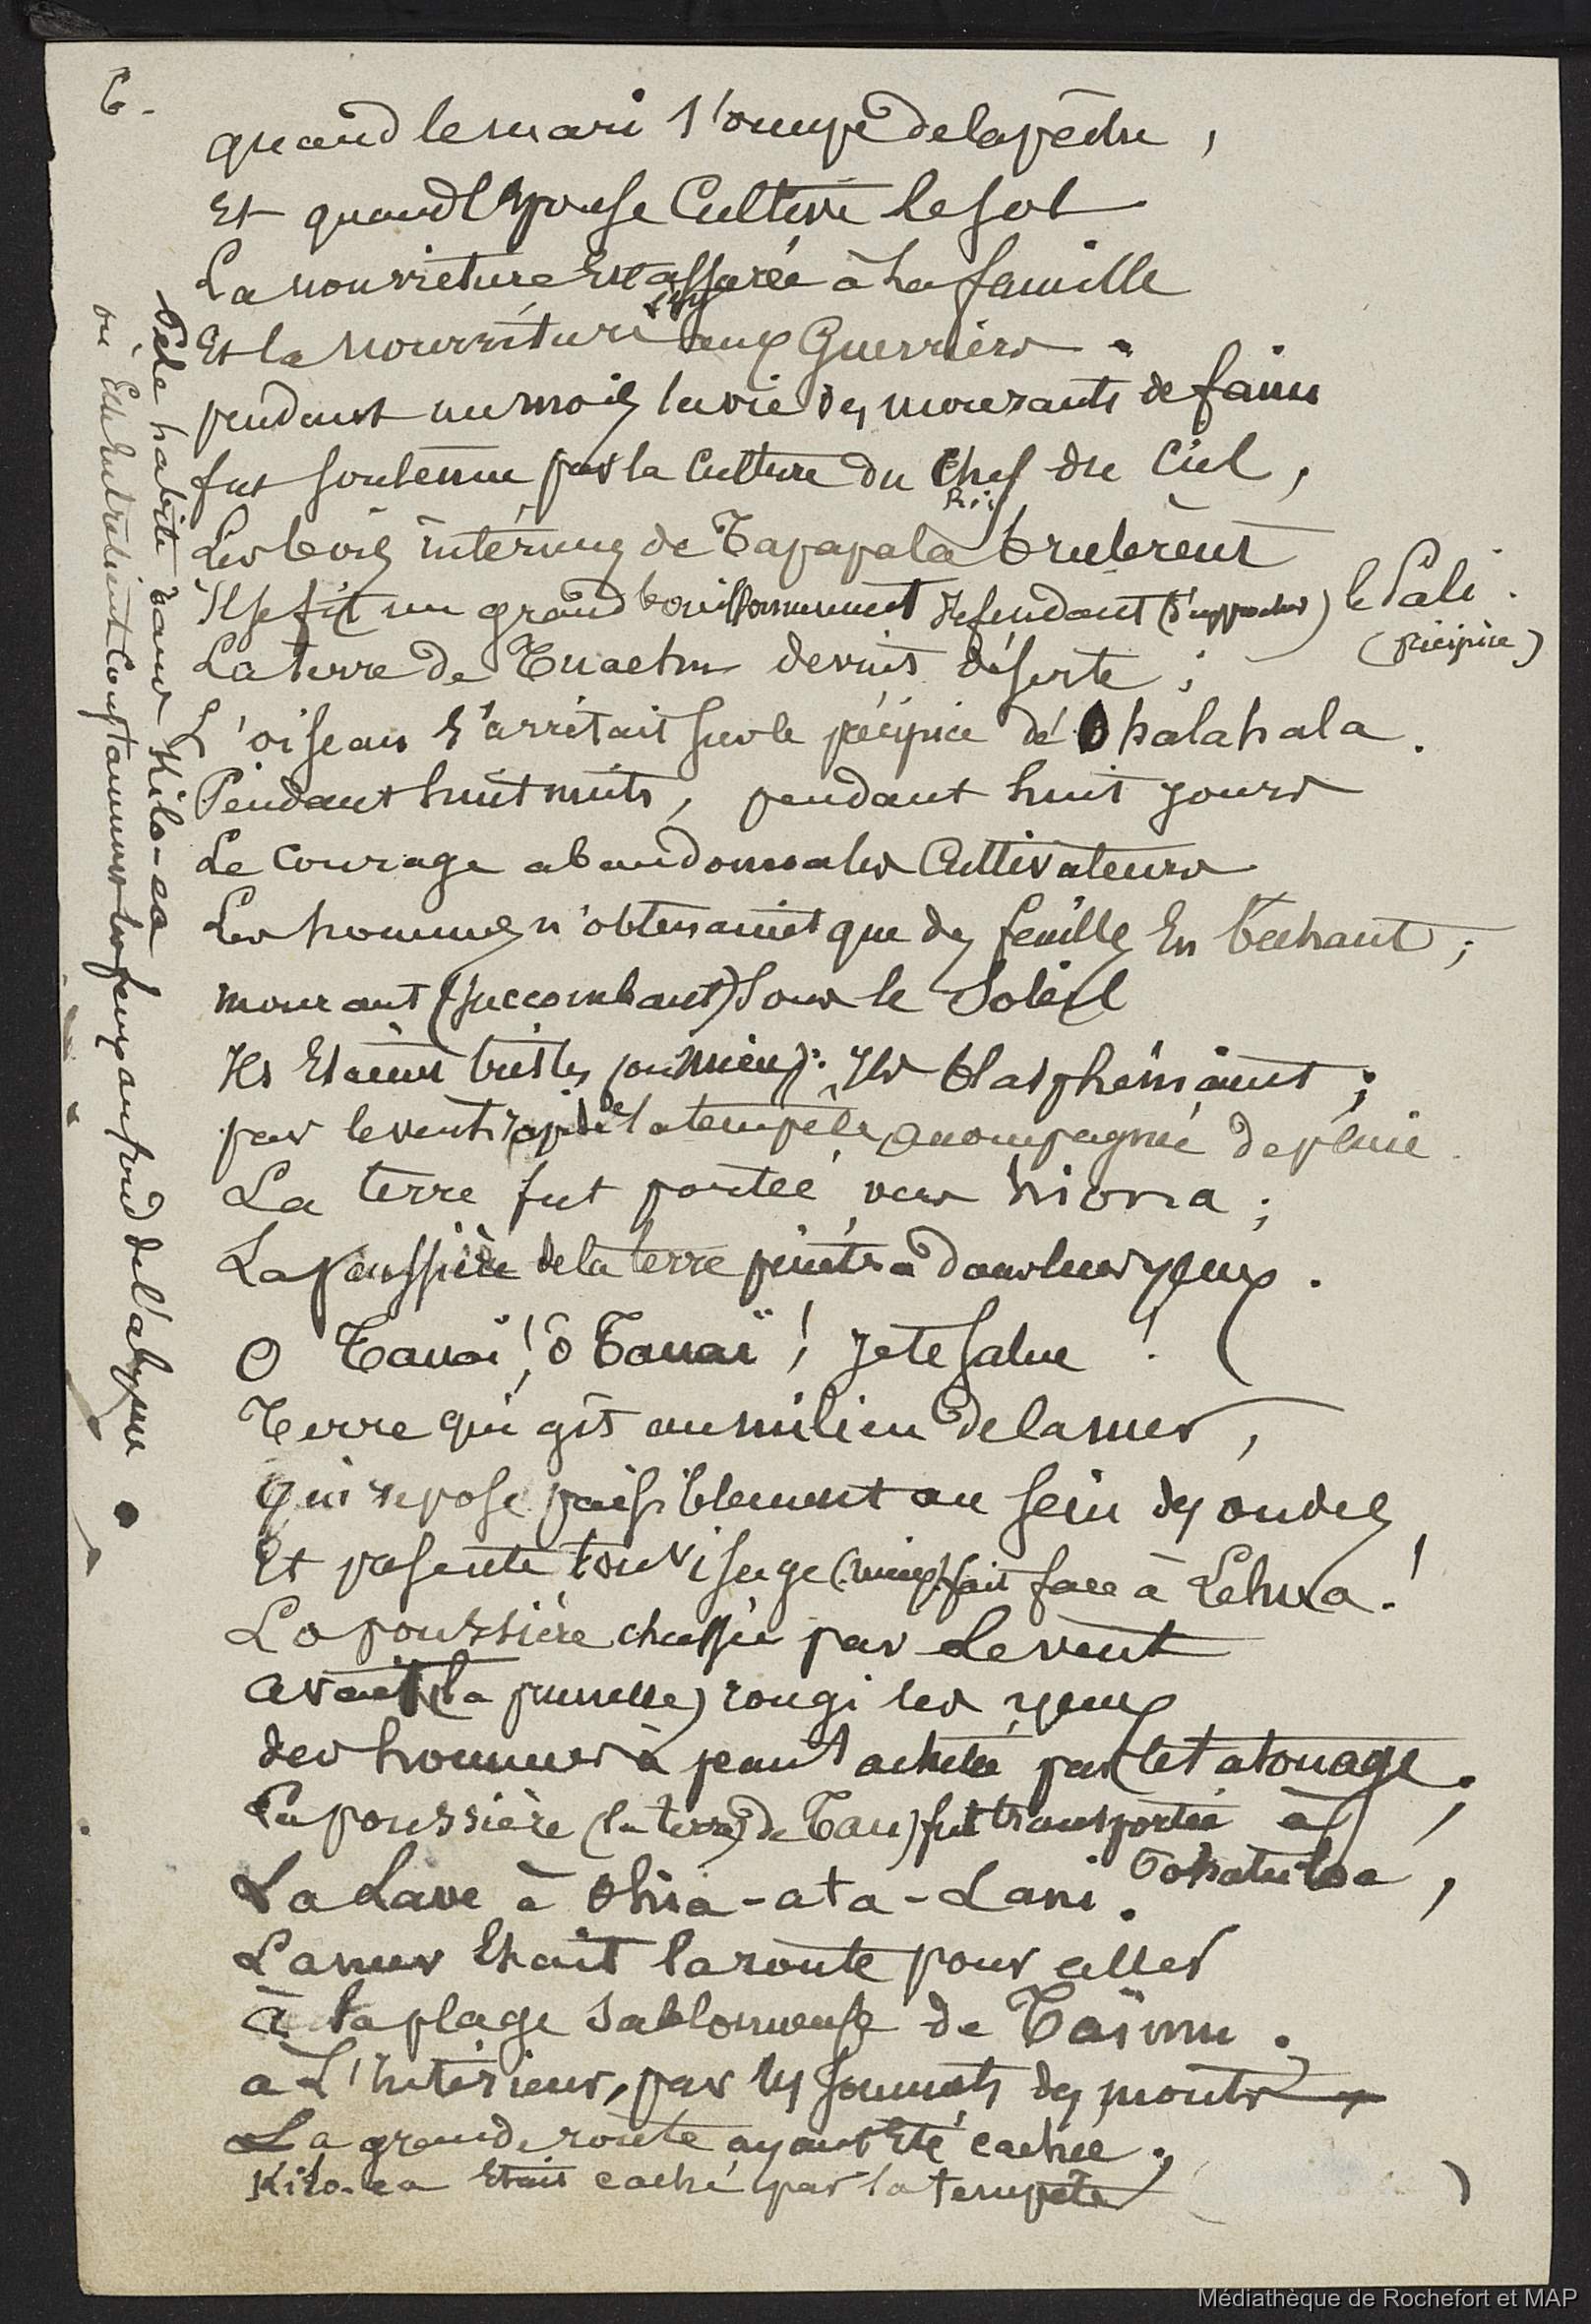 6.
quand le mari s'occupe de la pêche,
Et quand l'épouse Cultive le sol
La nourriture Est assurée à la famille
Et la nourriture aux Guerriers.
pendant un mois la vie des mourants de faim
fut soutenue par la Culture du Chef du Ciel,
Les bois intérieurs de Tapapala brulèrent
Il se fit un grand bouillonnement defendant (d'approcher) le Pali.
(précipice)
La terre de devint déserte;
L'oiseau s'arrêtait sur le précipice de Ohalahala.
Pendant huit nuits, pendant huit jours
Le Courage abandonna les Cultivateurs
Les hommes n'obtenaient que des feuilles En bechant;
mourant (succombant) sous le Soleil
Ils Etaient tristes (ou mieux): Ils blasphémaient;
par le vent rapide de la tempête, accompagné de pluie.
La terre fut portée vers hiona;
La poussière de la terre pénétra dans leurs yeux.
O Tauaï! ô Tauaï! je te salue!
Terre qui gît au milieu de la mer,
Qui repose paisiblement au sein des ondes
Et présente ton visage (mieux) fait face à Lehua!
La poussière chassée par le vent
avait (la prunelle) rougi les yeux
des hommes à peau tachetée par le tatouage.
La poussière (la terre de Tau) fut transportée à
,
La Lave à Ohia-ata-Lani.
La mer Etait la route pour aller
à la plage sablonneuse de Taïmu.
à L'intérieur, par les sommets des monts
La grande route ayant Eté cachée;
Kilo-ea Etait caché par la tempête
Pele habite dans Kilo-ea
où Elle Entretient Constamment les feux au fond de l'abyme.
Médiathèque de Rochefort et MAP